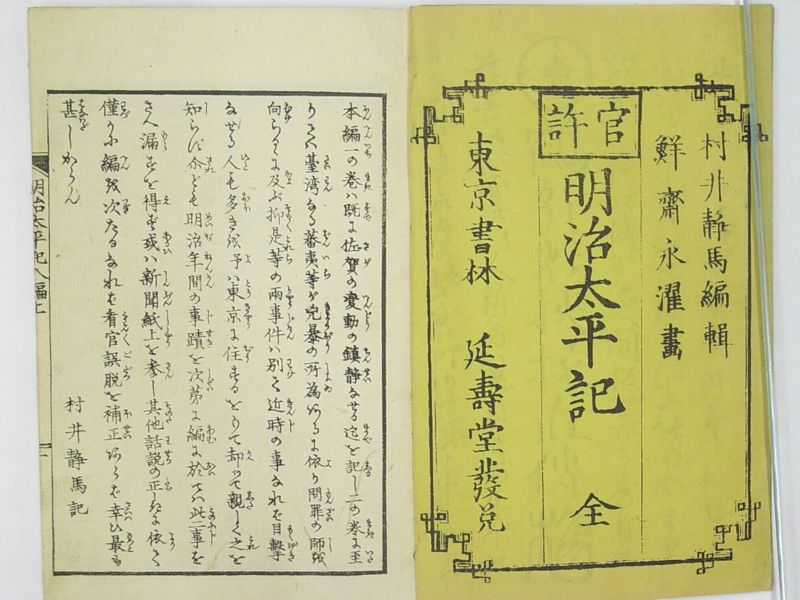 村井静馬編輯
鮮齋永濯畫
官許
明治太平記 全
東京書林 延壽堂發兌
本編一の巻ハ既に佐賀の変動の鎮静なせる迄を記し二の巻に至
りてハ臺湾なる蕃夷等が兇暴の所為あるに依り問罪の師を
向らるゝに及ぶ抑是等の両事件ハ別て近時の事なれバ目撃
なせる人も多き成予ハ東京に住するをもて却て親しく之を
知らず然ども明治年間の事蹟を次第に編に於てハ此二事を
さへ漏すを得ず或ハ新聞紙上を参し其他話説の正しきに依て
僅かに編成次たるなれバ看官誤脱を補正あらバ幸ひ最も
甚しからん
村井静馬記
明治太平記八編上